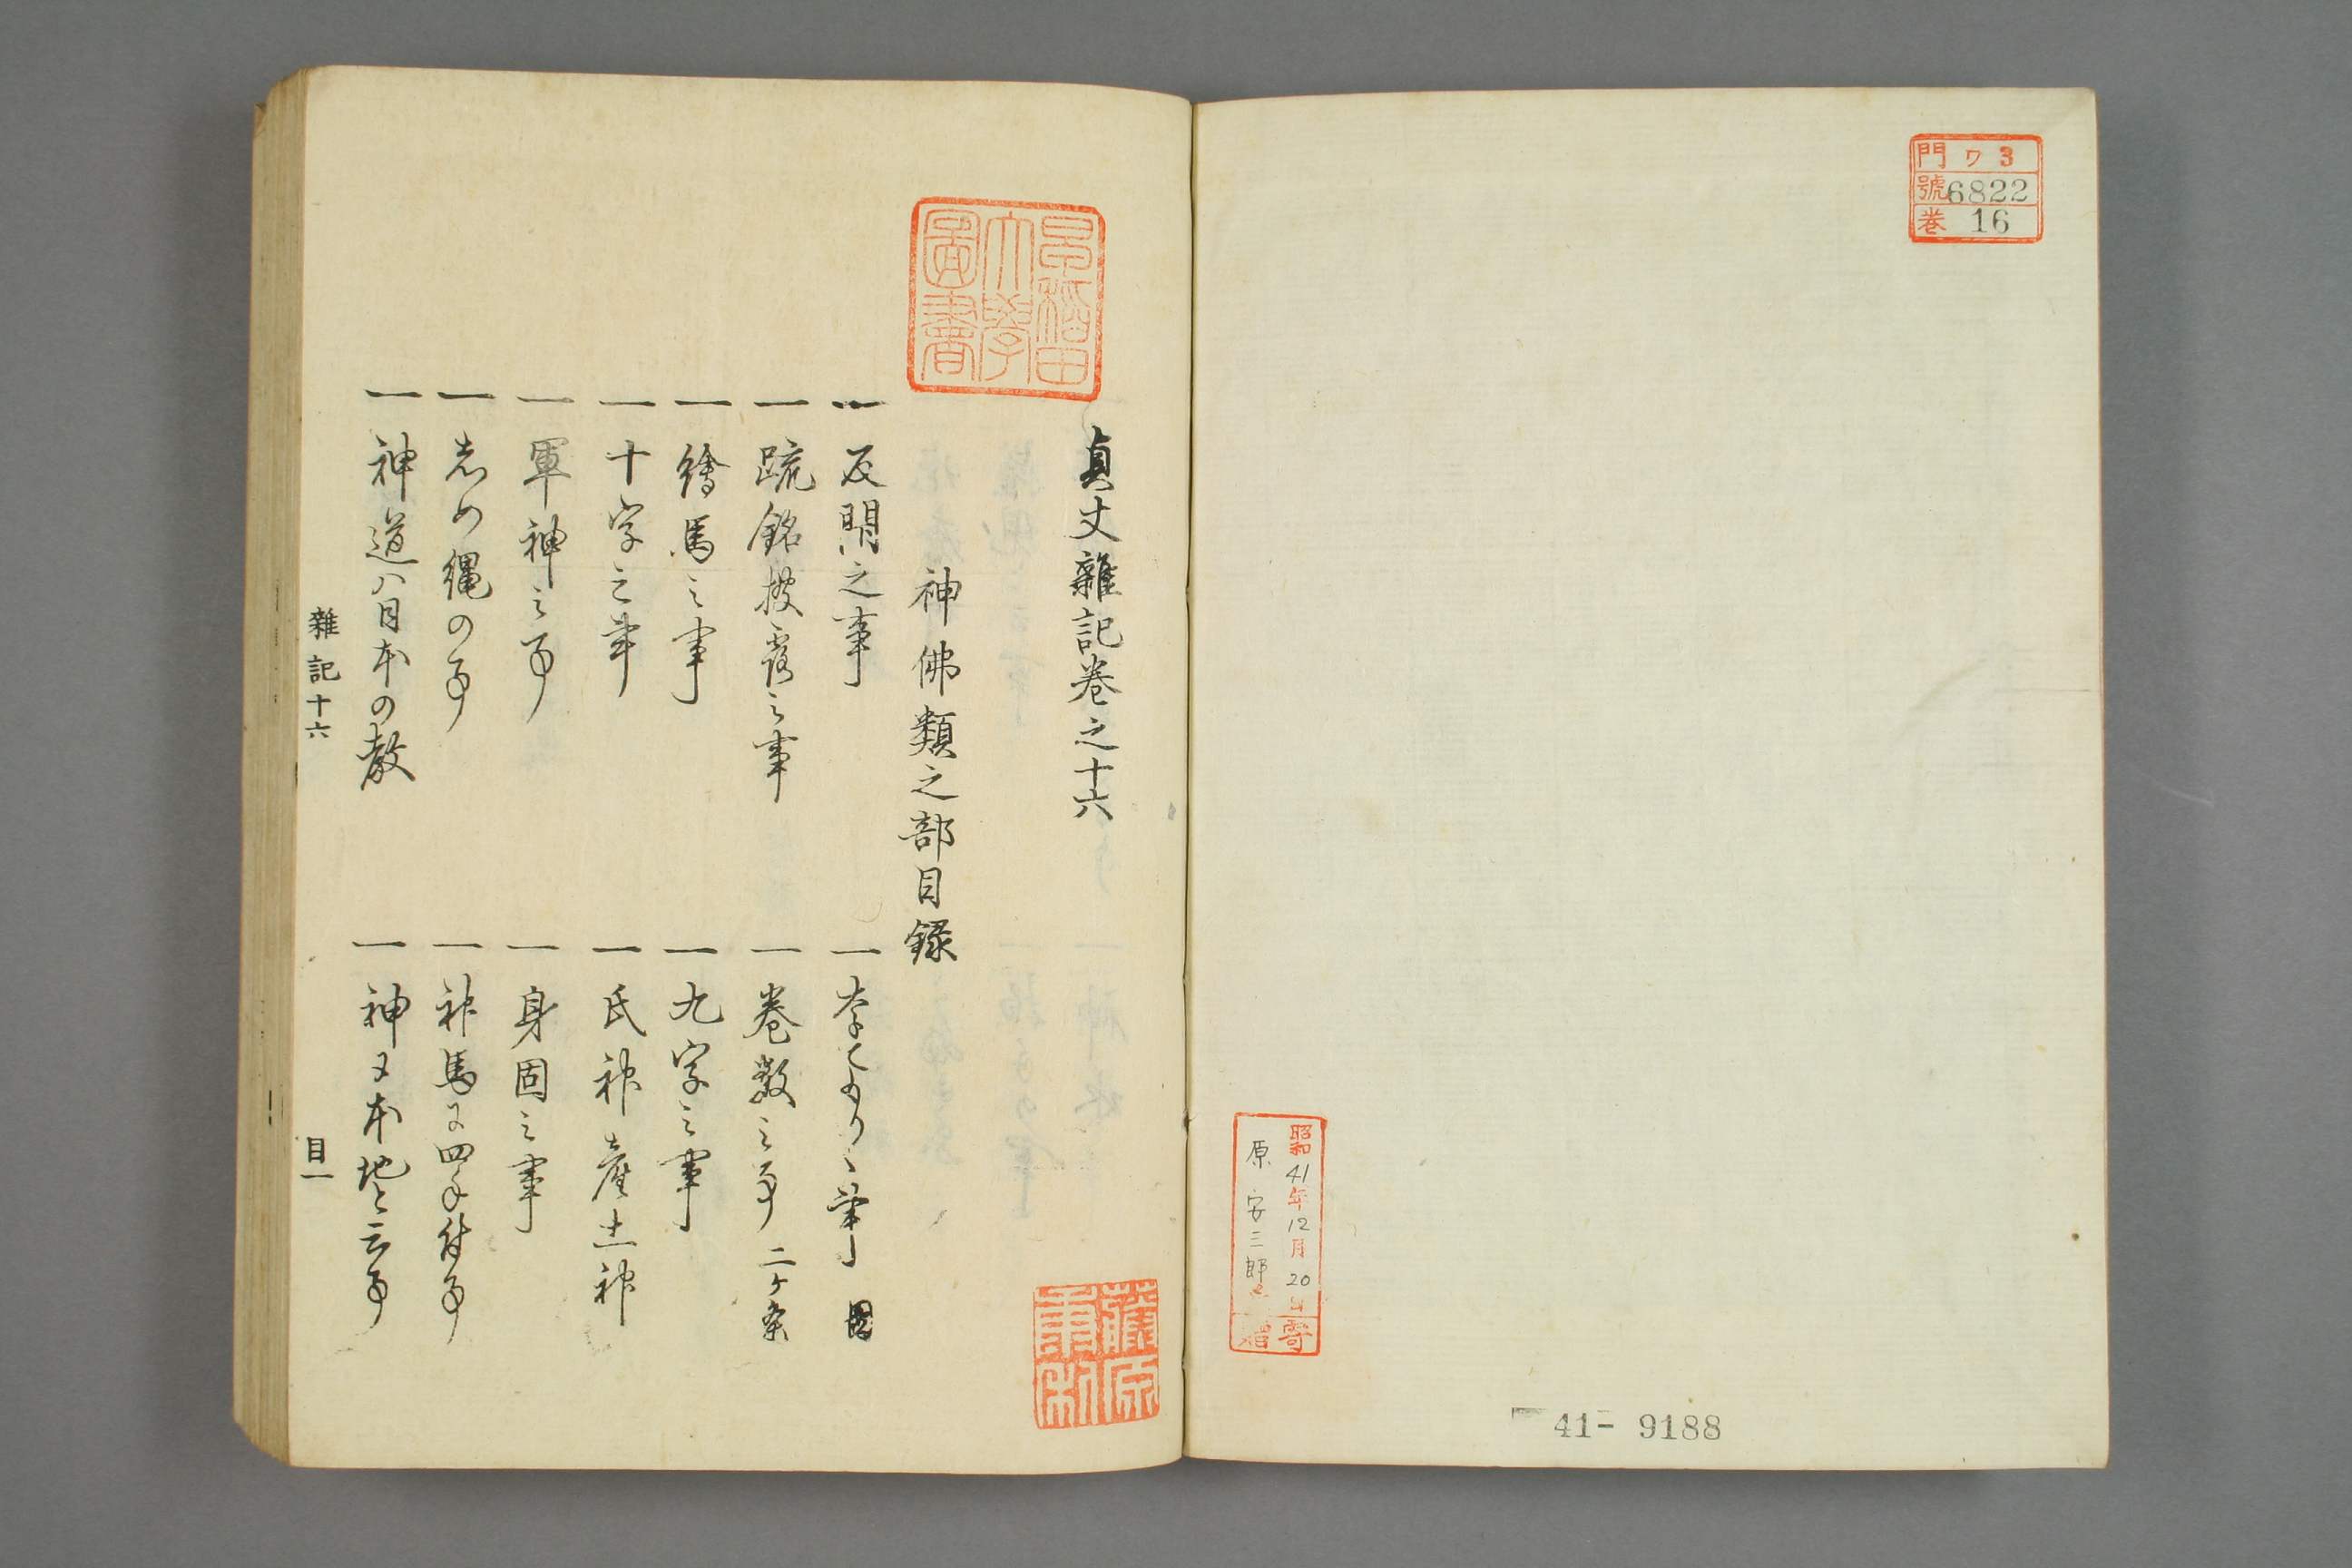 門 ワ 3
號 6822
巻 16
昭和41年12月20日
原安三郎氏
寄贈
41- 9188
早稲田
大學
圖書
貞丈雜記巻之十六
神佛類之部目録
一 反閇之事
一 疏銘披露之事
一 巻数之事 二ケ条
一 繪馬之事
一 九字之事
一 十字之事
一 氏神産土神
一 軍神之事
一 身固之事
一 志め縄の事
一 神馬に四手付事
一 神道ハ日本の教
一 神に本地と云事
藤原
雜記十六
目一